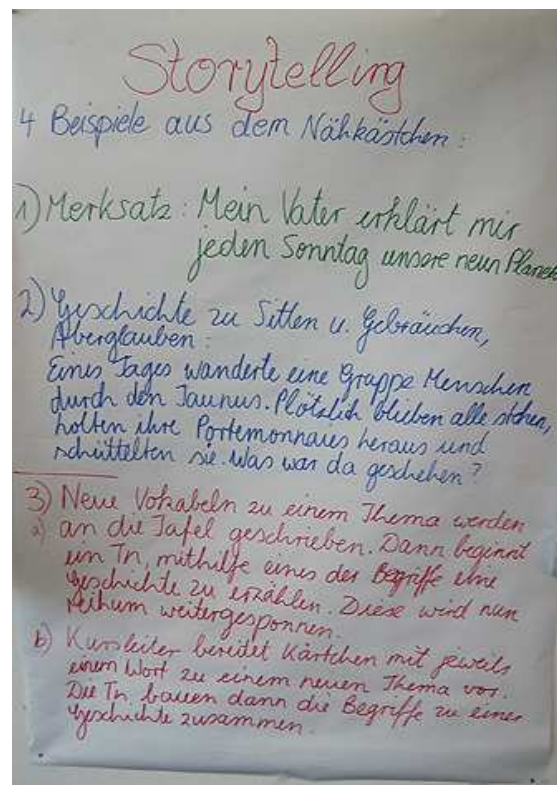 Storytelling
4 Beispiele aus dem Nähkästchen:
1) Merksatz: Mein Vater erklärt mir
jeden Sonntag unsere neun Planet
2) Geschichte zu Sitten u. Gebräuchen,
Aberglauben:
Eines Tages wanderte eine Gruppe Menschen
durch den Taunus. Plötzlich blieben alle stehen,
holten ihre Portemonnaies heraus und
schüttelten sie. Was war da geschehen?
3) Neue Vokabeln zu einem Thema werden
a) an die Tafel geschrieben. Dann beginnt
ein Tn, mithilfe eines der Begriffe eine
Geschichte zu erzählen. Diese wird nun
reihum weitergesponnen.
b) Kursleiter bereitet Kärtchen mit jeweils
einem Wort zu einem neuen Thema vor.
Die Tn. bauen dann die Begriffe zu einer
Geschichte zusammen.